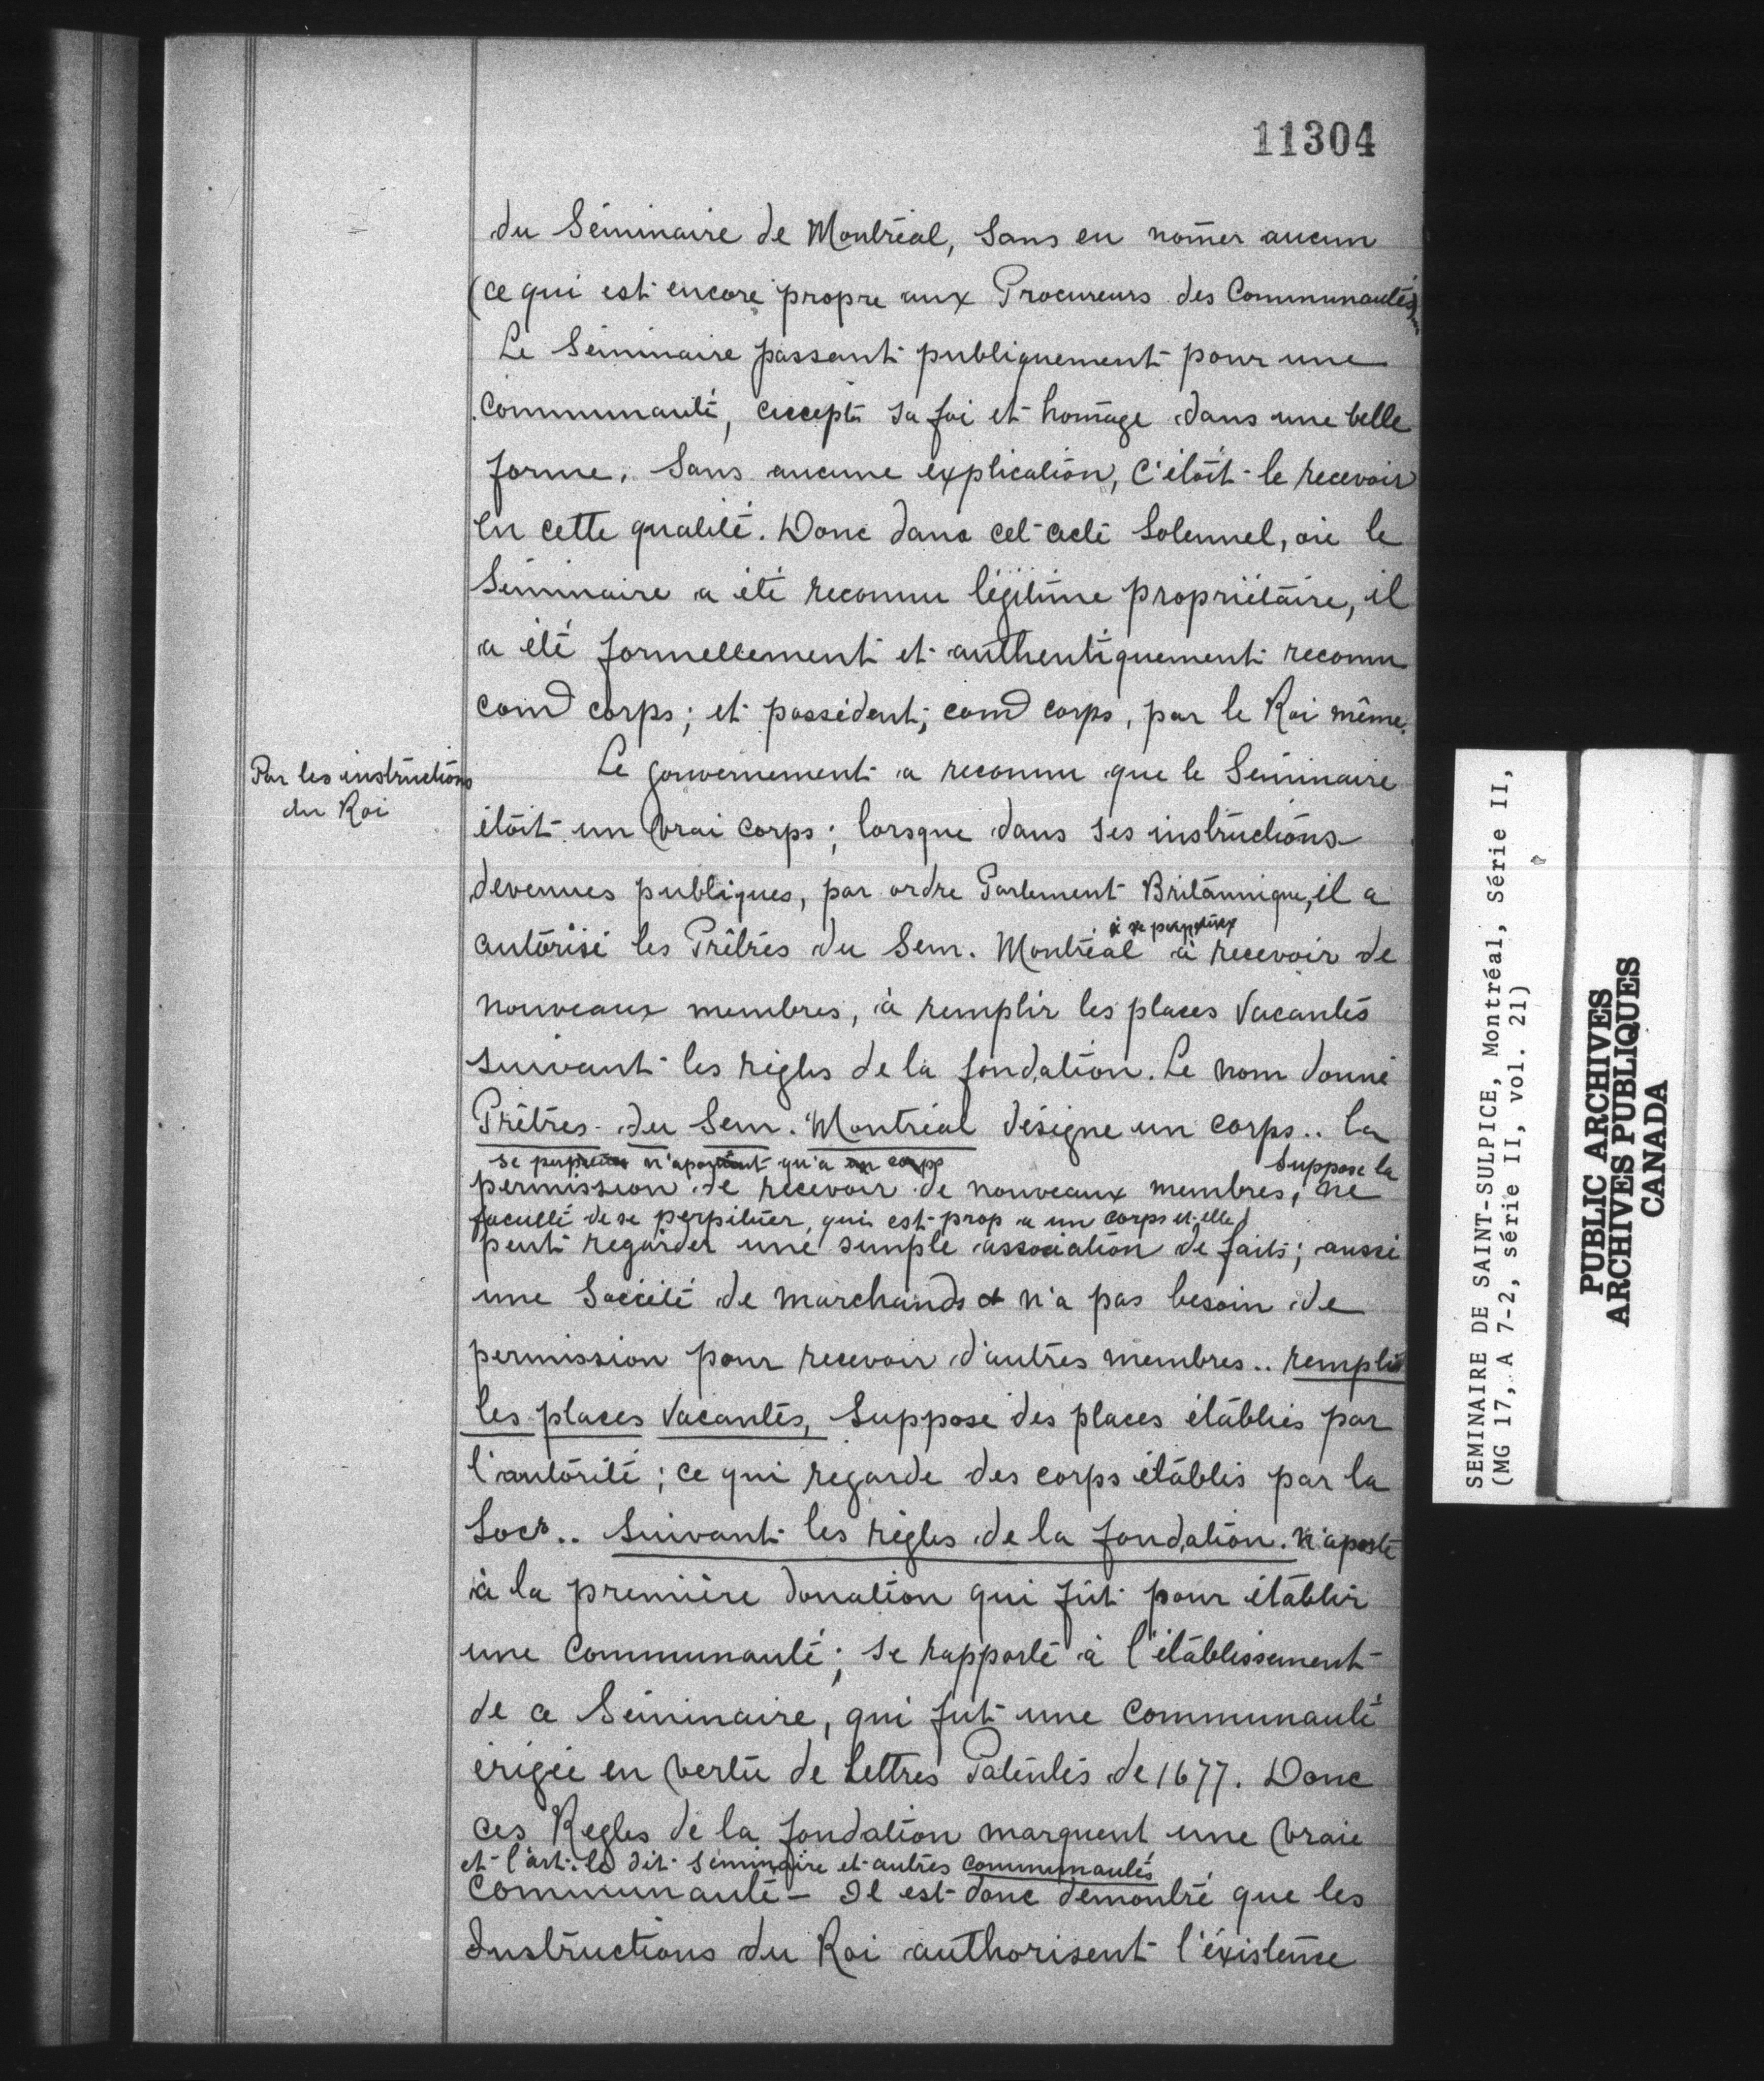 11304
du Séminaire de Montréal, sans en nom̄er aucun
(ce qui est encore propre aux Procureurs des Communautés)
Le Séminaire passant publiquement pour une
Communauté, accepter sa foi et hom̄age dans une belle
forme, sans aucune explication, c'étoit le recevoir
en cette qualité. Donc dans cet acte solennel, où le
Séminaire a été reconnu légitime propriétaire, il
a été formellement et authentiquement reconnu
com̄ corps; et possédant, com̄ corps, par le Roi même.
Par les instructions
du Roi
Le gouvernement a reconnu que le Séminaire
étoit un vrai corps; lorsque dans ses instructions
devenues publiques, par ordre Parlement Britannique, il a
à se perpétuer
autorisé les Prêtres du Sem. Montréal à recevoir de
nouveaux membres, à remplir les places vacantes
suivant les règles de la fondation. Le nom donné
Prêtres du Sem. Montréal désigne un corps.. la
se perpétuer n'apartient qu'à un corps suppose la
permission de recevoir de nouveaux membres, ne
faculté de se perpétuer, qui est prop a un corps et elle
peut regarder une simple association de faits; aussi
une Société de marchands n'a pas besoin de
permission pour recevoir d'autres membres.. remplir
les places vacantes, suppose des places établies par
l'autorité; ce qui regarde des corps établis par la
Soc.. Suivant les règles de la fondation.
à la première donation qui fût pour établir
une Communauté; se rapporte à l'établissement
de ce Séminaire, qui fut une Communauté
érigée en vertu de Lettres Patentes de 1677. Donc
ces Regles de la fondation marquent une vraie
et l'art. dit Séminaire et autres communautés
Communauté - Il est donc démontré que les
Instructions du Roi authorisent l'éxistence
SEMINAIRE DE SAINT-SULPICE, Montréal, Série II,
(MG 17, A 7-2, série II, vol. 21)
PUBLIC ARCHIVES
ARCHIVES PUBLIQUES
CANADA